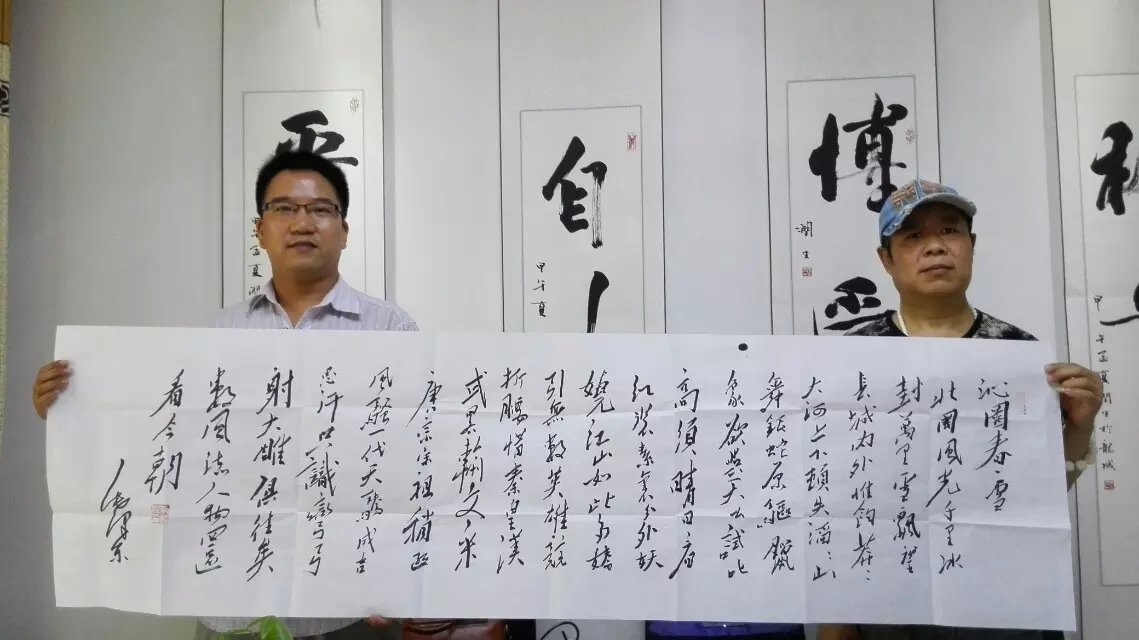 沁園春雪
北國風光千里冰
封萬里雪飄望
長城内外惟餘莽々
大河上下頓失滔々山
舞銀蛇原馳臘
象欲與天公試比
高須晴日看
紅裝素裹分外妖
嬈江山如此多嬌
引無數英雄競
折腰惜秦皇漢
武略輸文采
唐宗宋祖稍遜
風騷一代天驕成吉
思汗只識彎弓
射大雕俱往矣
數風流人物還
看今朝
毛澤東
博
潤生
自
甲午夏
甲午孟夏潤生於龍城